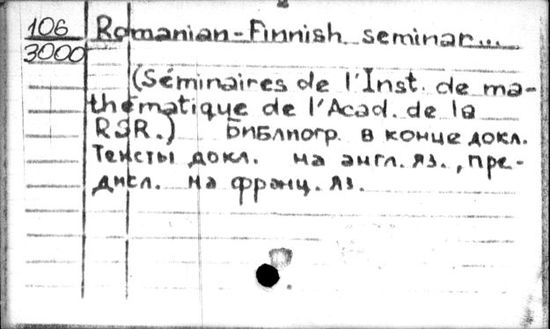 106
3000
Romanian-Finnish seminar...
(Séminaires de l'Inst. de ma-
thématique de l'Acad. de la
RSR.) Библиогр. в конце докл.
Тексты докл. на англ. яз., пре-
дисл. на франц. яз.